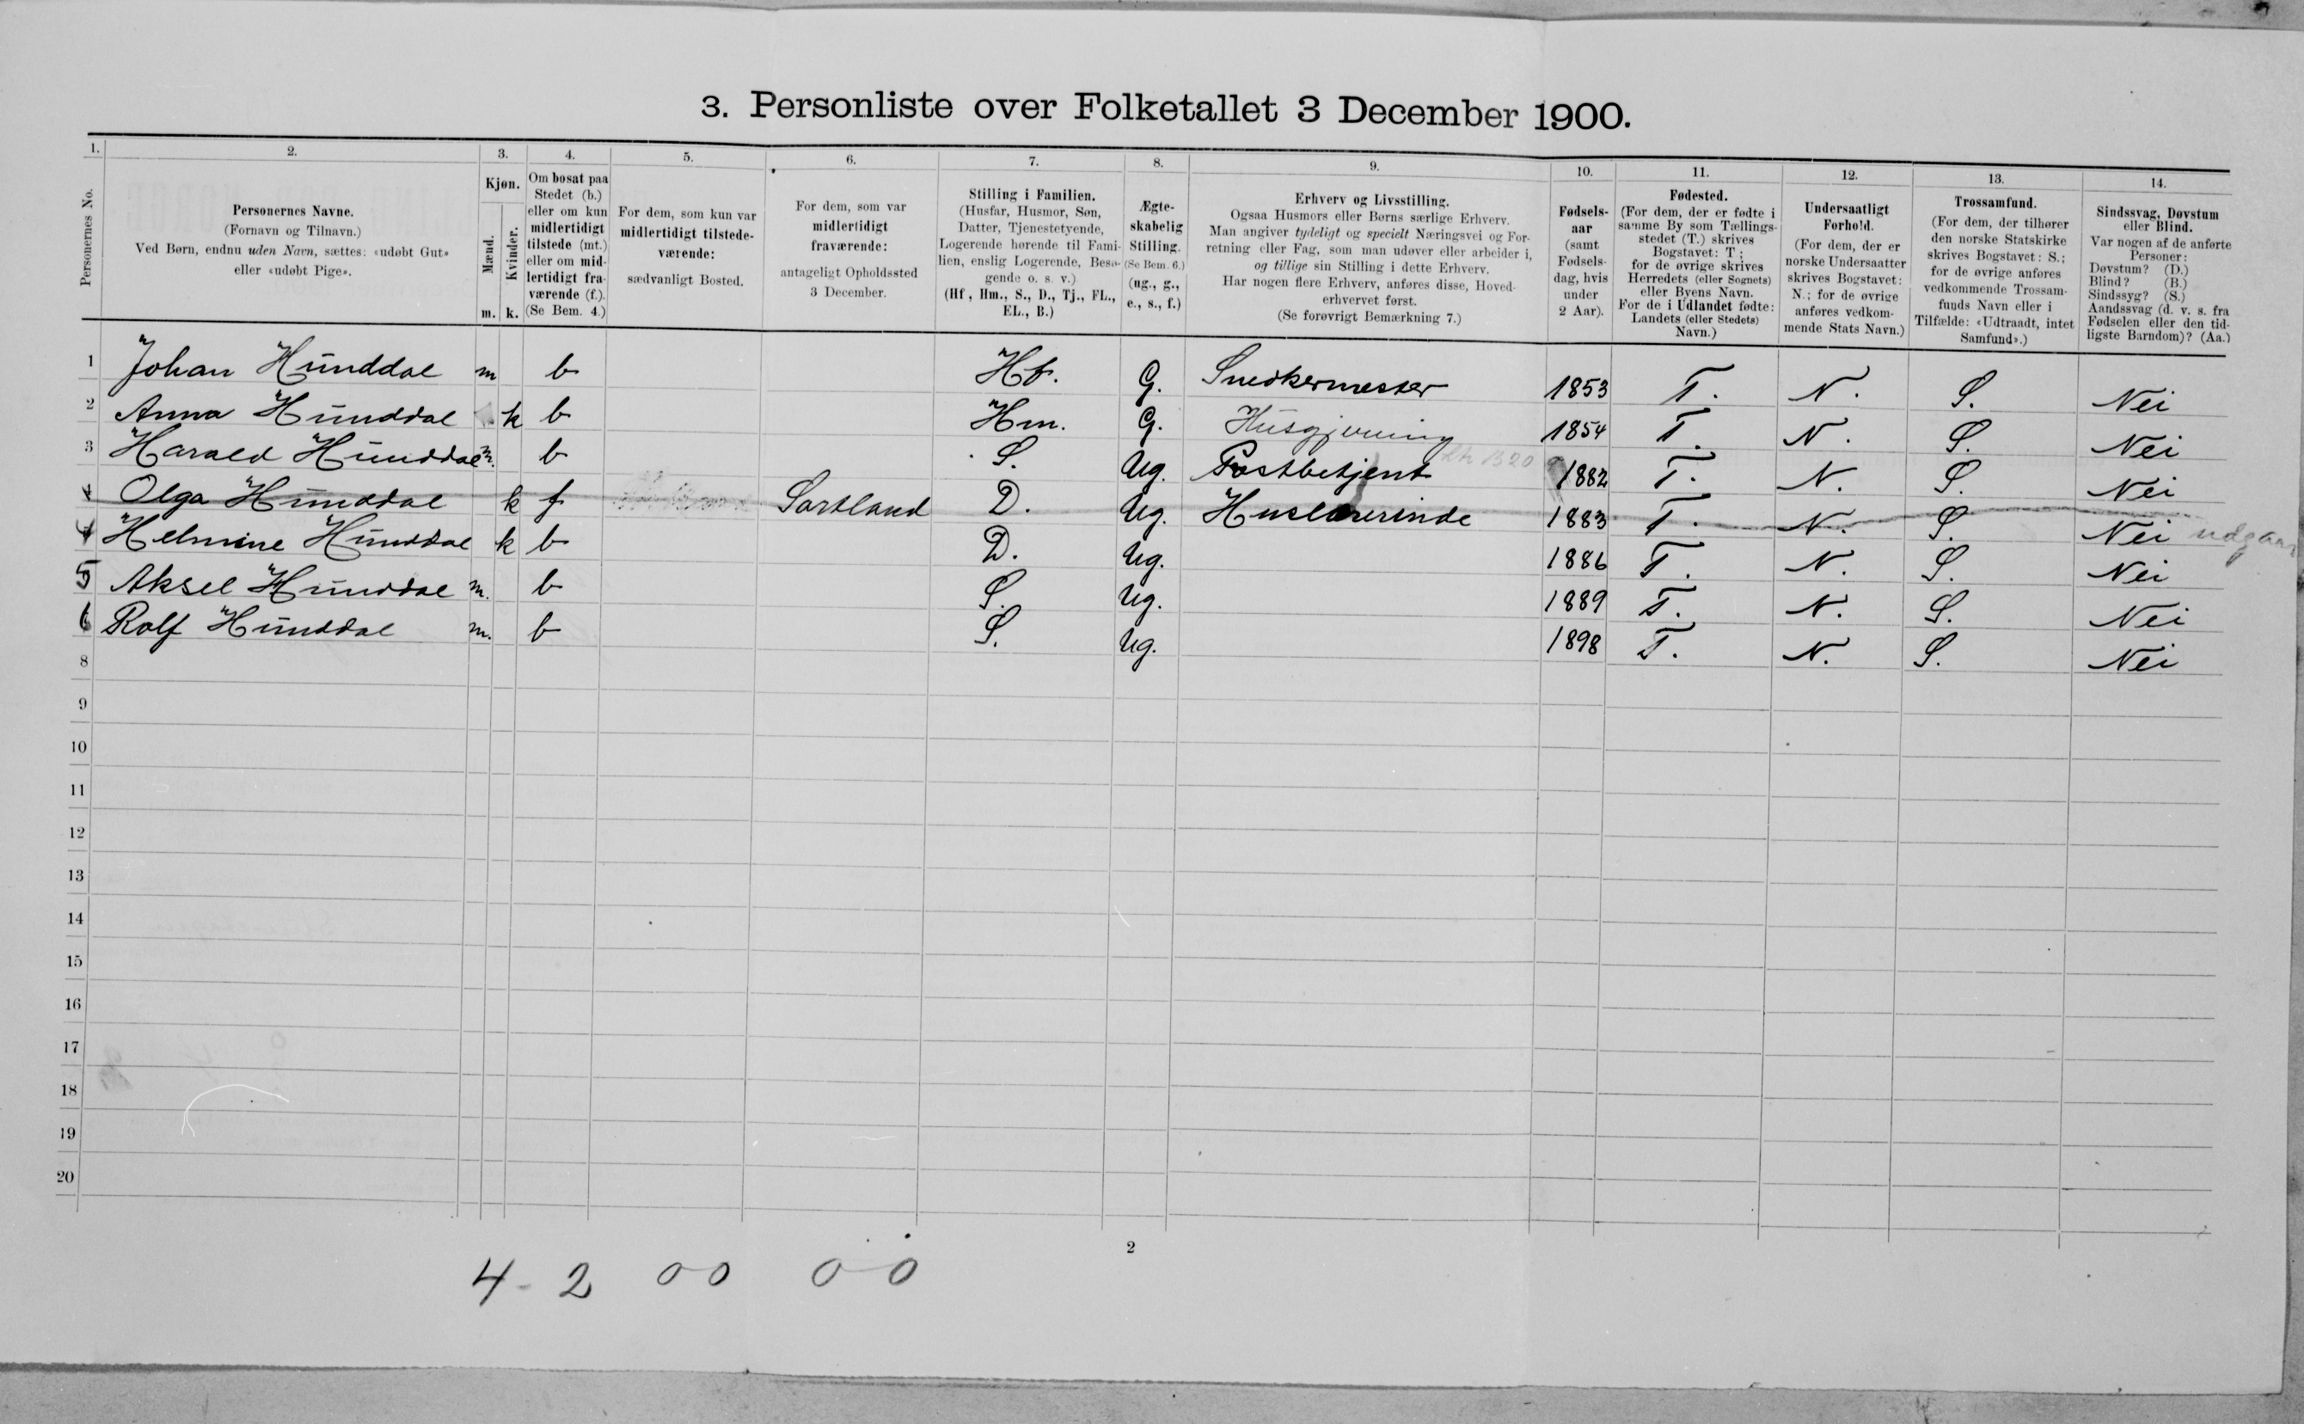 3. Personliste over Folketallet 3 December 1900.
1. 2. 3. 4. 5. 6. 7. 8. 9. 10. 11. 12. 13. 14.
Personernes No.
Personernes Navne.
(Fornavn og Tilnavn.)
Ved Børn, endnu uden Navn, sættes: «udøbt Gut»
eller «udøbt Pige».
Kjøn.
Mænd.
Kvinder.
m. k.
Om bosat paa
Stedet (b.)
eller om kun
midlertidigt
tilstede (mt.)
eller om mid-
lertidigt fra-
værende (f.).
(Se Bem. 4.)
For dem, som kun var
midlertidigt tilstede-
værende:
sædvanligt Bosted.
For dem, som var
midlertidigt
fraværende:
antageligt Opholdssted
3 December.
Stilling i Familien.
(Husfar, Husmor, Søn,
Datter, Tjenestetyende,
Logerende hørende til Fami-
lien, enslig Logerende, Besø-
gende o. s. v.)
(Hf, Hm., S., D., Tj., FL.,
EL., B.)
Ægte-
skabelig
Stilling.
(Se Bem. 6.)
(ug., g.,
e., s., f.)
Erhverv og Livsstilling.
Ogsaa Husmors eller Børns særlige Erhverv.
Man angiver tydeligt og specielt Næringsvei og For-
retning eller Fag, som man udøver eller arbeider i,
og tillige sin Stilling i dette Erhverv.
Har nogen flere Erhverv, anføres disse, Hoved-
erhvervet først.
(Se forøvrigt Bemærkning 7.)
Fødsels-
aar
(samt
Fødsels-
dag, hvis
under
2 Aar).
Fødested.
(For dem, der er fødte i
samme By som Tællings-
stedet (T.) skrives
Bogstavet: T;
for de øvrige skrives
Herredets (eller Sognets)
eller Byens Navn.
For de i Udlandet fødte:
Landets (eller Stedets)
Navn.)
Undersaatligt
Forhold.
(For dem, der er
norske Undersaatter
skrives Bogstavet:
N.; for de øvrige
anføres vedkom-
mende Stats Navn.)
Trossamfund.
(For dem, der tilhører
den norske Statskirke
skrives Bogstavet: S.;
for de øvrige anføres
vedkommende Trossam-
funds Navn eller i
Tilfælde: «Udtraadt, intet
Samfund».)
Sindssvag, Døvstum
eller Blind.
Var nogen af de anførte
Personer:
Døvstum? (D.)
Blind? (B.)
Sindssyg? (S.)
Aandssvag (d. v. s. fra
Fødselen eller den tid-
ligste Barndom)? (Aa.)
1 Johan Hunddal m b Hf. G. Snedkermester 1853 T. N. S. Nei
2 Anna Hunddal k b Hm. G. Husgjerning 1854 T. N. S. Nei
3 Harald Hunddal m. b S. Ug. Postbetjent 1882 T. N. S. Nei
4 Olga Hunddal k f Sortland D. Ug. Huslærerinde 1883 T. N. S. Nei
4 Helmine Hunddal k b D. Ug. 1886 T. N. S. Nei
5 Aksel Hunddal m. b S. Ug. 1889 T. N. S. Nei
6 Rolf Hunddal m. b S. Ug. 1898 T. N. S. Nei
8
9
10
11
12
13
14
15
16
17
18
19
20
2
4 - 2 0 0 0 0